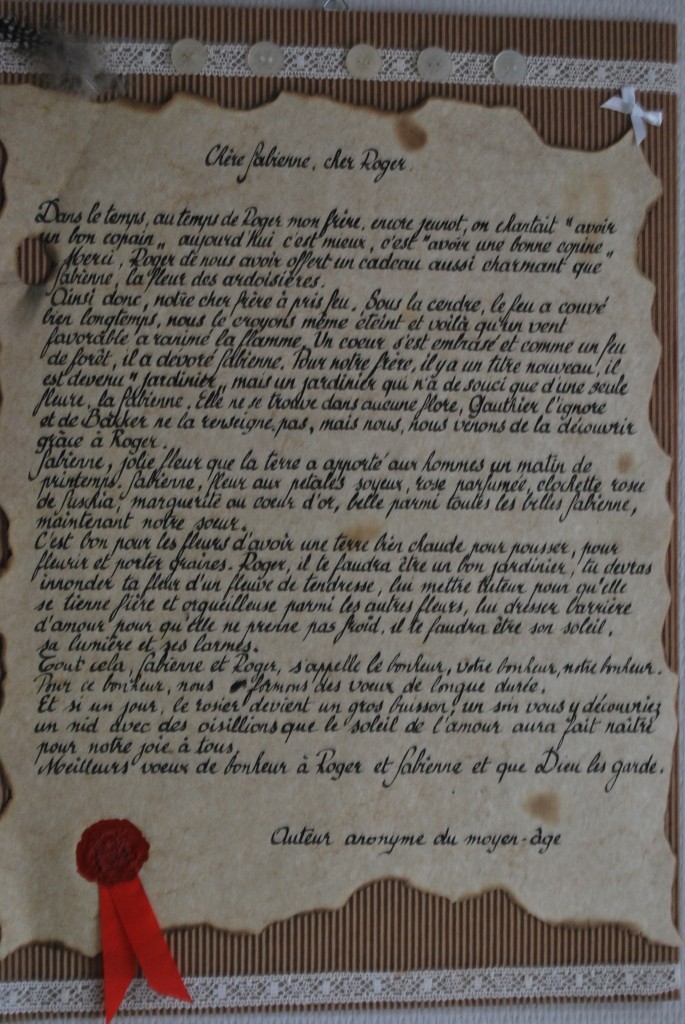 Chère Fabienne, cher Roger.
Dans le temps, au temps de Roger mon frère, encore jeunot, on chantait "avoir
un bon copain„ aujourd'hui c'est mieux, c'est "avoir une bonne copine"
Merci, Roger de nous avoir offert un cadeau aussi charmant que"
Fabienne, la fleur des ardoisières.
Ainsi donc, notre cher frère à pris feu. Sous la cendre, le feu a couvé
bien longtemps, nous le croyons même éteint et voilà qu'un vent
favorable a ranimé la flamme. Un coeur s'est embrasé et comme un feu
de forêt, il a dévoré Fabienne. Pour notre frère, il y a un titre nouveau, il
est devenu "jardinier„ mais un jardinier qui n'à de souci que d'une seule
fleure, la Fabienne. Elle ne se trouve dans aucune flore, Gauthier l'ignore
et de Bakker ne la renseigne pas, mais nous, nous venons de la découvrir
grâce à Roger.
Fabienne, jolie fleur que la terre a apporté aux hommes un matin de
printemps. Fabienne, fleur aux petales soyeux, rose parfumée, clochette rose
de fuschia, marguerite au coeur d'or, belle parmi toutes les belles Fabienne,
maintenant notre soeur.
C'est bon pour les fleurs d'avoir une terre bien chaude pour pousser, pour
fleurir et porter graines. Roger, il te faudra être un bon jardinier, tu devras
innonder ta fleur d'un fleuve de tendresse, lui mettre tuteur pour qu'elle
se tienne fière et orgueilleuse parmi les autres fleurs, lui dresser barrière
d'amour pour qu'elle ne prenne pas froid, il te faudra être son soleil,
sa lumière et ses larmes.
Tout cela, Fabienne et Roger, s'appelle le bonheur, votre bonheur, notre bonheur.
Pour ce bonheur, nous formons des voeux de longue durée.
Et si un jour, le rosier devient un gros buisson, un soir vous y découvriez
un nid avec des oisillions que le soleil de l'amour aura fait naître
pour notre joie à tous.
Meilleurs voeux de bonheur à Roger et Fabienne et que Dieu les garde.
Auteur anonyme du moyen-âge